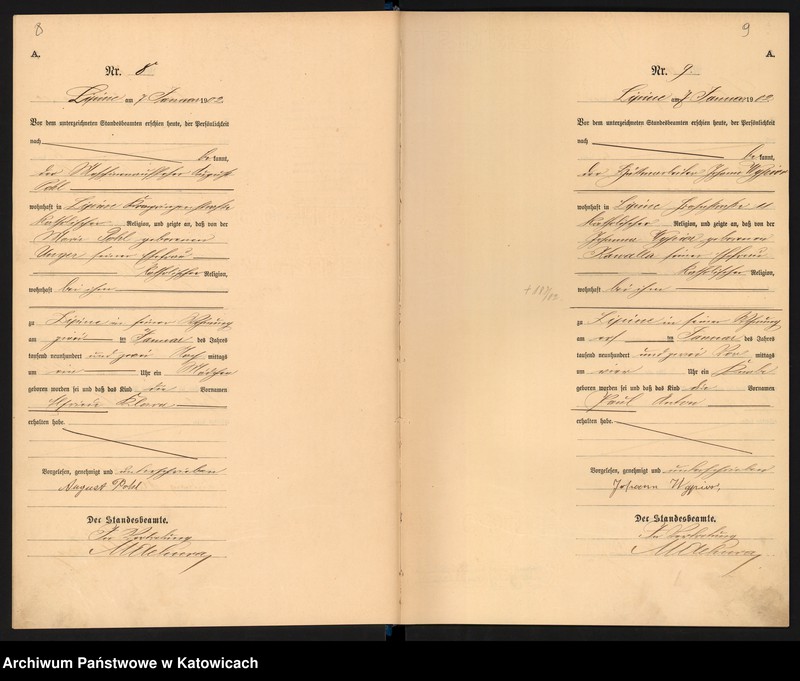 8
A.
Nr. 8
Lipine am 7 Januar 1902
Vor dem unterzeichneten Standesbeamten erschien heute, der Persönlichkeit
nach
be kannt,
der Maschinenwärter August
Pohl
wohnhaft in Lipine
katholischer Religion, und zeigte an, daß von der
Marie Pohl geborenen
Unger seiner Ehefrau
katholischer Religion,
wohnhaft bei ihm
zu Lipine in seiner Wohnung
am zwei ten Januar des Jahres
tausend neunhundert und zwei Nach mittags
um ein Uhr ein Mädchen
geboren worden sei und daß das Kind die Vornamen
Elfriede Klara
erhalten habe.
Vorgelesen, genehmigt und unterschrieben
August Pohl
Der Standesbeamte.
In Vertretung
9
A.
Nr. 9
Lipine am 7 Januar 1902
Vor dem unterzeichneten Standesbeamten erschien heute, der Persönlichkeit
nach
be kannt,
der Hüttenarbeiter Johann Wypior
wohnhaft in Lipine 11
katholischer Religion, und zeigte an, daß von der
Johanna Wypior geborenen
Kawalla seiner Ehefrau
katholischer Religion,
wohnhaft bei ihm
zu Lipine in seiner Wohnung
am ten Januar des Jahres
tausend neunhundert und zwei Vor mittags
um vier Uhr ein Knabe
geboren worden sei und daß das Kind die Vornamen
Paul Anton
erhalten habe.
Vorgelesen, genehmigt und unterschrieben
Johann Wypior,
Der Standesbeamte.
In Vertretung
Archiwum Państwowe w Katowicach